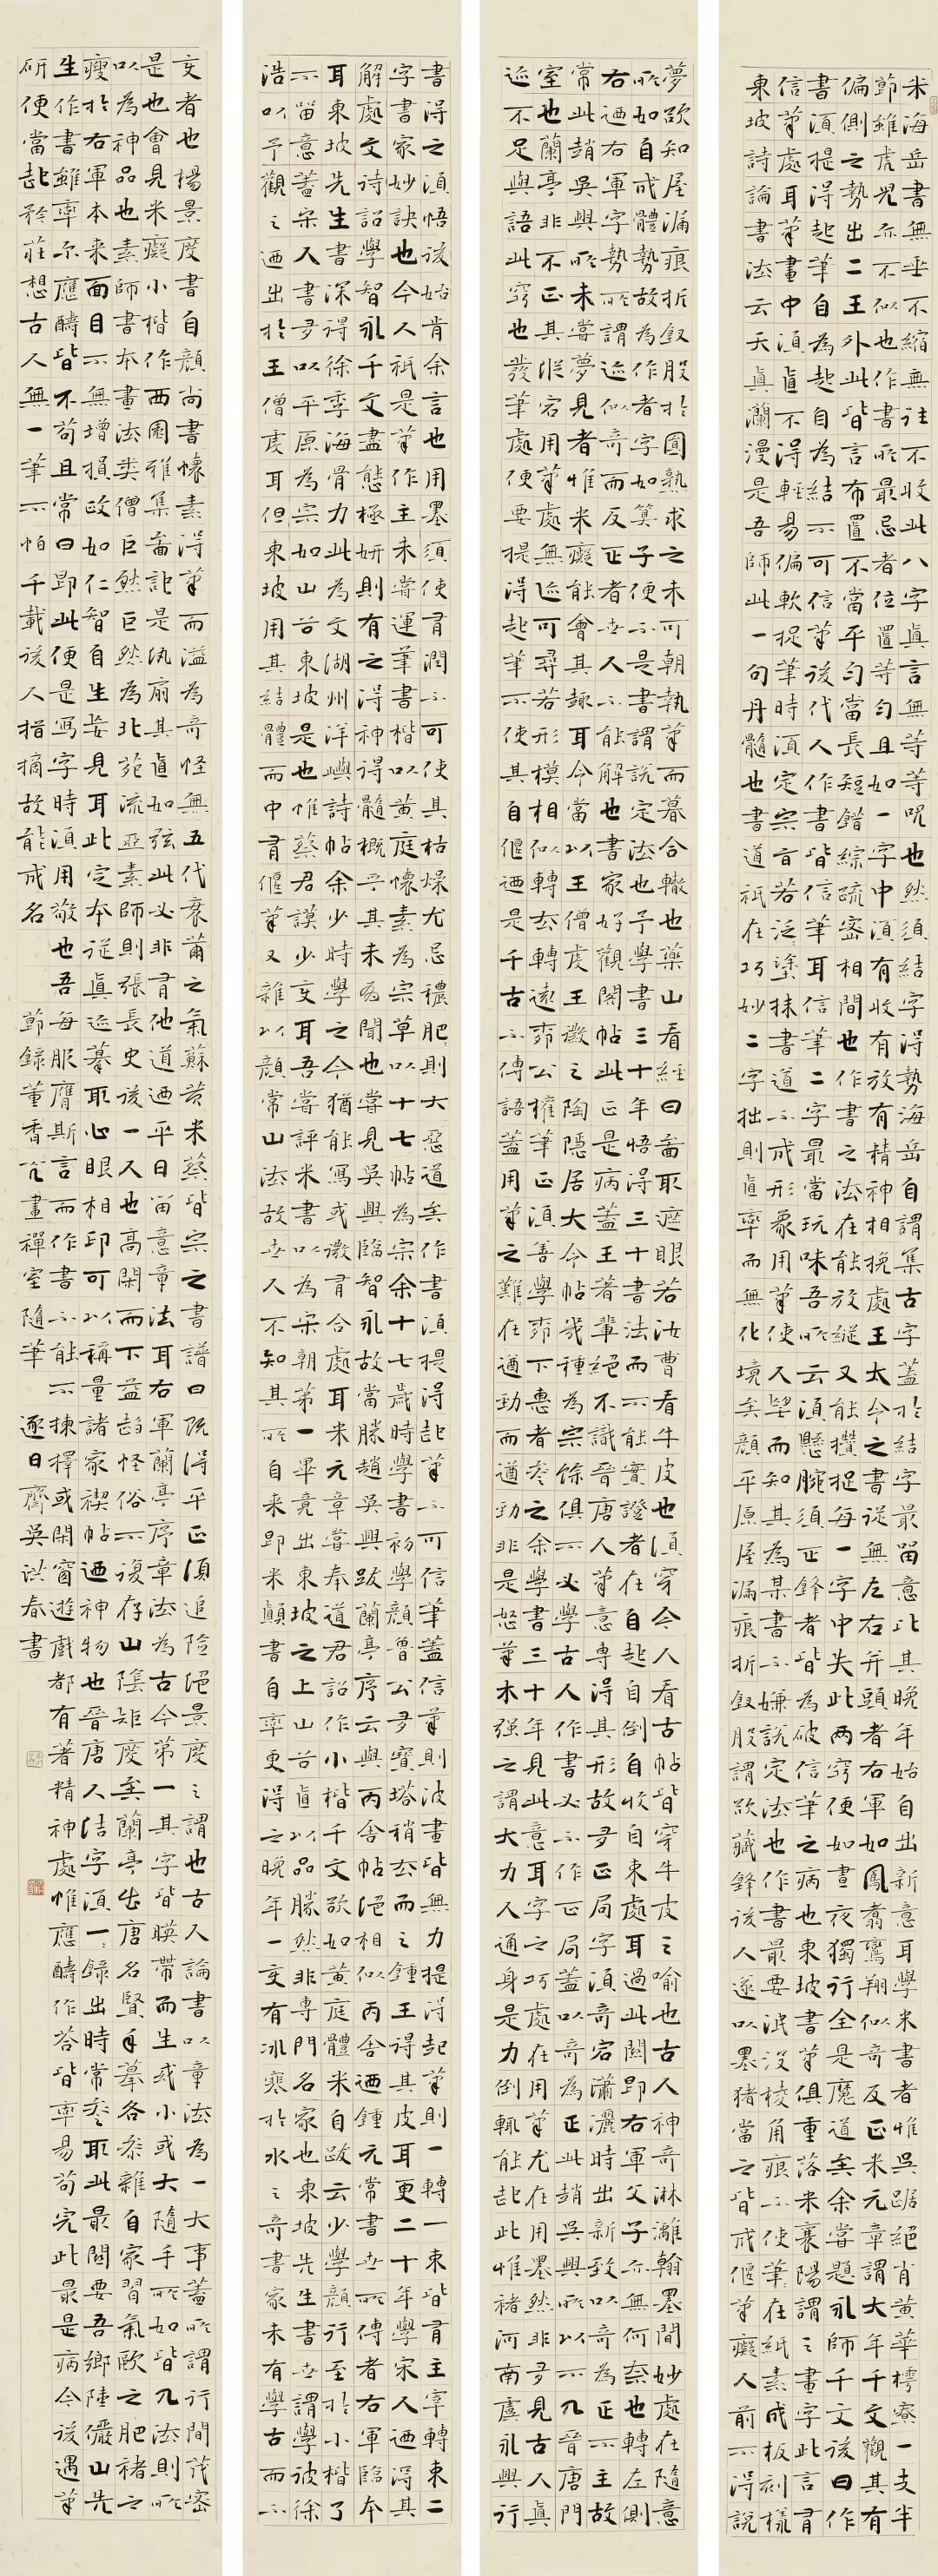 米海岳書無垂不縮無往不收此八字真言無等等呪也然須結字得勢海岳自謂集古字蓋於結字最留意比其晚年始自出新意耳學米書者惟吳琚絕肖黃華樗寮一支半
節雖虎兒亦不似也作書所最忌者位置等勻且如一字中須有收有放有精神相挽處王大令之書從無左右并頭者右軍如鳳翥鸞翔似奇反正米元章謂大年千文觀其有
偏側之勢出二王外此皆言布置不當平勻當長短錯綜疏密相間也作書之法在能放縱又能攢捉每一字中失此兩竅便如晝夜獨行全是魔道矣余嘗題永師千文後曰作
書須提得起筆自為起自為結不可信筆後代人作書皆信筆耳信筆二字最當玩味吾所云須懸腕須正鋒者皆為破信筆之病也東坡書筆俱重落米襄陽謂之畫字此言有
信筆處耳筆畫中須直不得輕易偏軟捉筆時須定宗旨若泛塗抹書道不成形象用筆使人望而知其為某書不嫌說定法也作書最要泯沒棱角痕不使筆在紙素成板刻樣
東坡詩論書法云天真瀾漫是吾師此一句丹髓也書道祇在巧妙二字拙則直率而無化境矣顏平原屋漏痕折釵股謂欲藏鋒後人遂以墨豬當之皆成偃筆癡人前不得說
夢欲知屋漏痕折釵股於圓熟求之未可朝執筆而暮合轍也藥山看經曰圖取遮眼若汝曹看牛皮也須穿今人看古帖皆穿牛皮之喻也古人神奇淋漓翰墨間妙處在隨意
所如自成體勢故為作者字如算子便不是書謂說定法也予學書三十年悟得三十書法而不能實證者在自起自倒自收自束處耳過此關即右軍父子亦無何奈也轉左側
右迺右軍字勢所謂迹似奇而反正者世人不能解也書家好觀閣帖此正是病蓋王著輩絕不識晉唐人筆意專得其形故多正局字須奇宕瀟灑時出新致以奇為正不主故
常此趙吳興所未嘗夢見者惟米癡能會其趣耳今當以王僧虔王徽之陶隱居大令帖幾種為宗餘俱不必學古人作書必不作正局蓋以奇為正此趙吳興所以不入晉唐門
室也蘭亭非不正其縱宕用筆處無迹可尋若形模相似轉去轉遠柳公權筆正須善學柳下惠者參之余學書三十年見此意耳字之巧處在用筆尤在用墨然非多見古人真
迹不足與語此竅也發筆處便要提得起筆不使其自偃迺是千古不傳語蓋用筆之難在遒勁而遒勁非是怒筆木強之謂大力人通身是力倒輒能起此惟褚河南虞永興行
書得之須悟後始肯余言也用墨須使有潤不可使其枯燥尤忌穠肥則大惡道矣作書須提得起筆不可信筆蓋信筆則波畫皆無力提得起筆則一轉一束皆有主宰轉束二
字書家妙訣也今人祇是筆作主未嘗運筆書楷以黃庭懷素為宗草以十七帖為宗余十七歲時學書初學顏魯公多寶塔稍去而之鍾王得其皮耳更二十年學宋人迺得其
解處文詩詔學智永千文盡態極妍則有之得神得髓概乎其未有聞也嘗見吳興臨智永故當勝趙吳興跋蘭亭序云與丙舍帖絕相似丙舍迺鍾元常書世所傳者右軍臨本
耳東坡先生書深得徐季海骨力此為文湖州洋嶼詩帖余少時學之今猶能寫或微有合處耳米元章嘗奉道君詔作小楷千文欲如黃庭體米自跋云少學顏行至於小楷了
不留意蓋宋人書多以平原為宗如山谷東坡是也惟蔡君謨少變耳吾嘗評米書以為宋朝第一畢竟出東坡之上山谷直以品勝然非專門名家也東坡先生書世謂學彼徐
浩以予觀之迺出於王僧虔耳但東坡用其結體而中有偃筆又雜以顏常山法故世人不知其所自來即米顛書自率更得之晚年一變有冰寒於水之奇書家未有學古而不
變者也楊景度書自顏尚書懷素得筆而溢為奇怪無五代衰薾之氣蘇黃米蔡皆宗之書譜曰既得平正須追險絕景度之謂也古人論書以章法為一大事蓋所謂行間茂密
是也會見米癡小楷作西園雅集圖記是紈扇其直如弦此必非有他道迺平日留意章法耳右軍蘭亭序章法為古今第一其字皆映帶而生或小或大隨手所如皆入法則所
以為神品也素師書本畫法類僧巨然巨然為北苑流亞素師則張長史後一人也高閑而下益趨怪俗不復存山陰矩度矣蘭亭出唐名賢手摹各參雜自家習氣歐之肥褚之
瘦於右軍本來面目不無增損政如仁智自生妄見耳此定本從真迹摹取心眼相印可以稱量諸家禊帖迺神物也晉唐人結字須一一錄出時常參取此最關要吾鄉陸儼山先
生作書雖率尔應酬皆不苟且常曰即此便是寫字時須用敬也吾每服膺斯言而作書不能不揀擇或閑窗遊戲都有著精神處惟應酬作答皆率易苟完此最是病今後遇筆
研便當起矜莊想古人無一筆不怕千載後人指摘故能成名 節錄董香光畫禪室隨筆 逐日齋吳洪春書